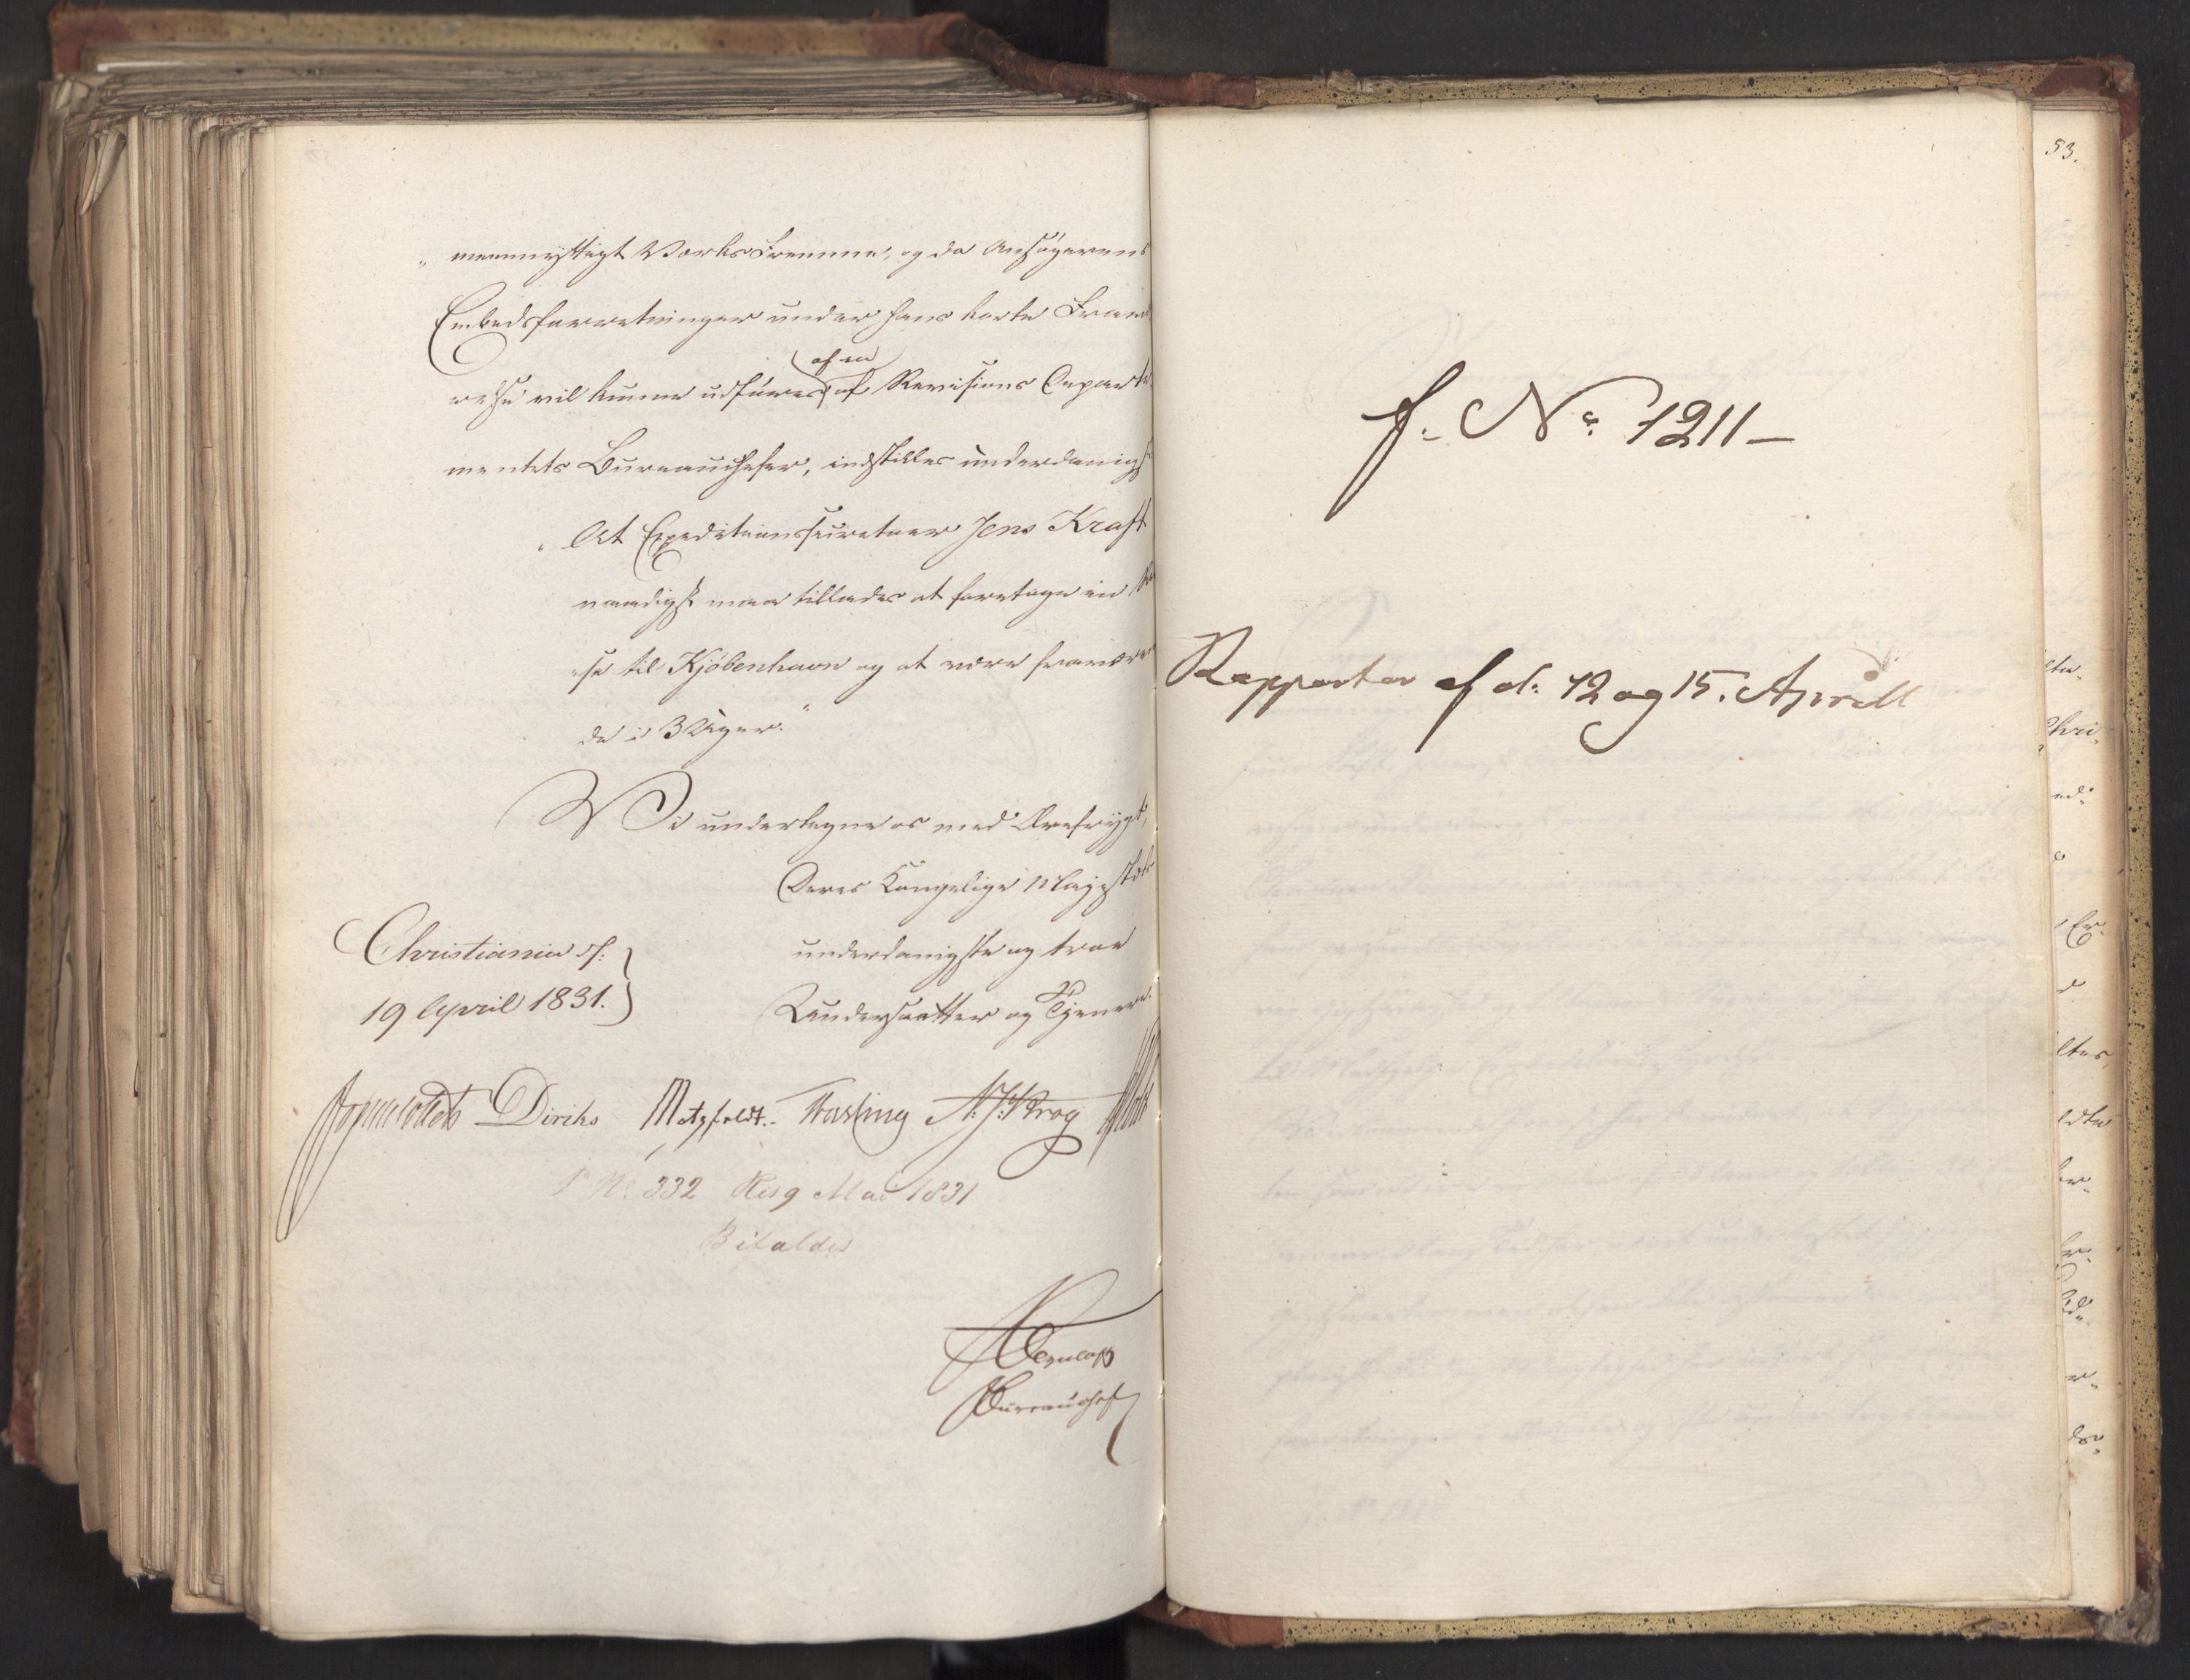 „mennyttigt Værks Fremme, og da Ansøgerens
Embedsforretninger under hans korte Fravæ-
relse vil kunne udføres af en af Revisions Departe-
mentets Bureauchefer, indstilles underdanigst
„At Expeditionssecretair Jens Kraft
naadigst maa tillades at foretage en Rei-
se til Kjøbenhavn og at være fraværen-
de i 3 Uger.“
Vi undertegne os med Ærefrygt,
Deres Kongelige Majestæts
underdanigste og troe
Undersaatter og Tjenere.
Christiania d:
19 April 1831.
Diriks Motzfeldt. Fasting A. J. Krog
No 332 Res 9 Mai 1831
Bifaldes
Bureauchef
f. No. 1211 –
Rapporter af d: 12 og 15. Aprill
53.